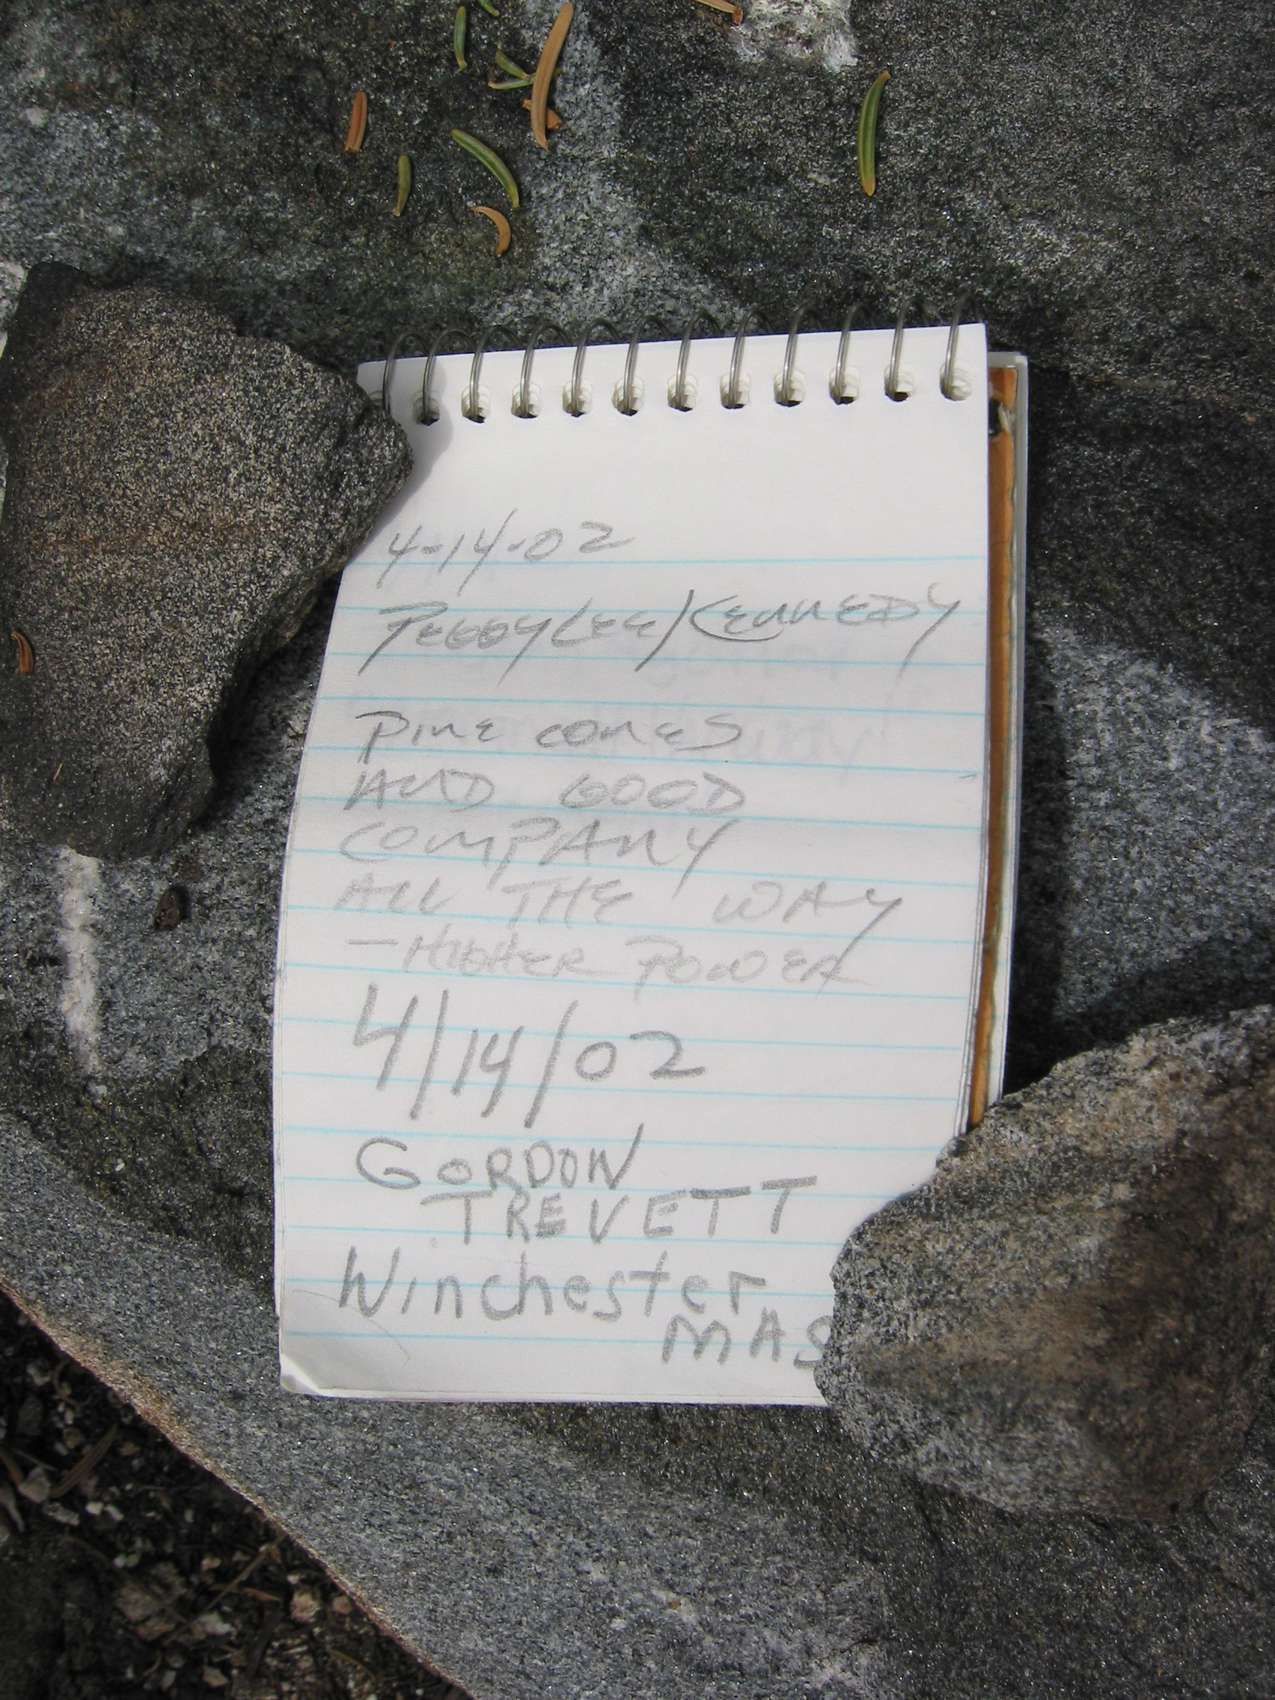 4-14-02
Peggy Lee Kennedy
Pine cones
AND GOOD
COMPANY
ALL THE WAY
- HIGHER POWER
4/14/02
GORDON
TREVETT
Winchester
MAS